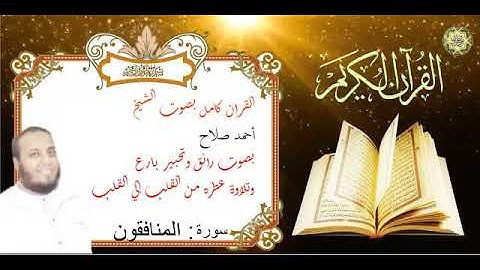 القرآن الكريم
القران كامل بصوت الشيخ
أحمد صلاح
بصوت رائق وتحبير بارع
وتلاوة عطره من القلب الي القلب
سورة: المنافقون